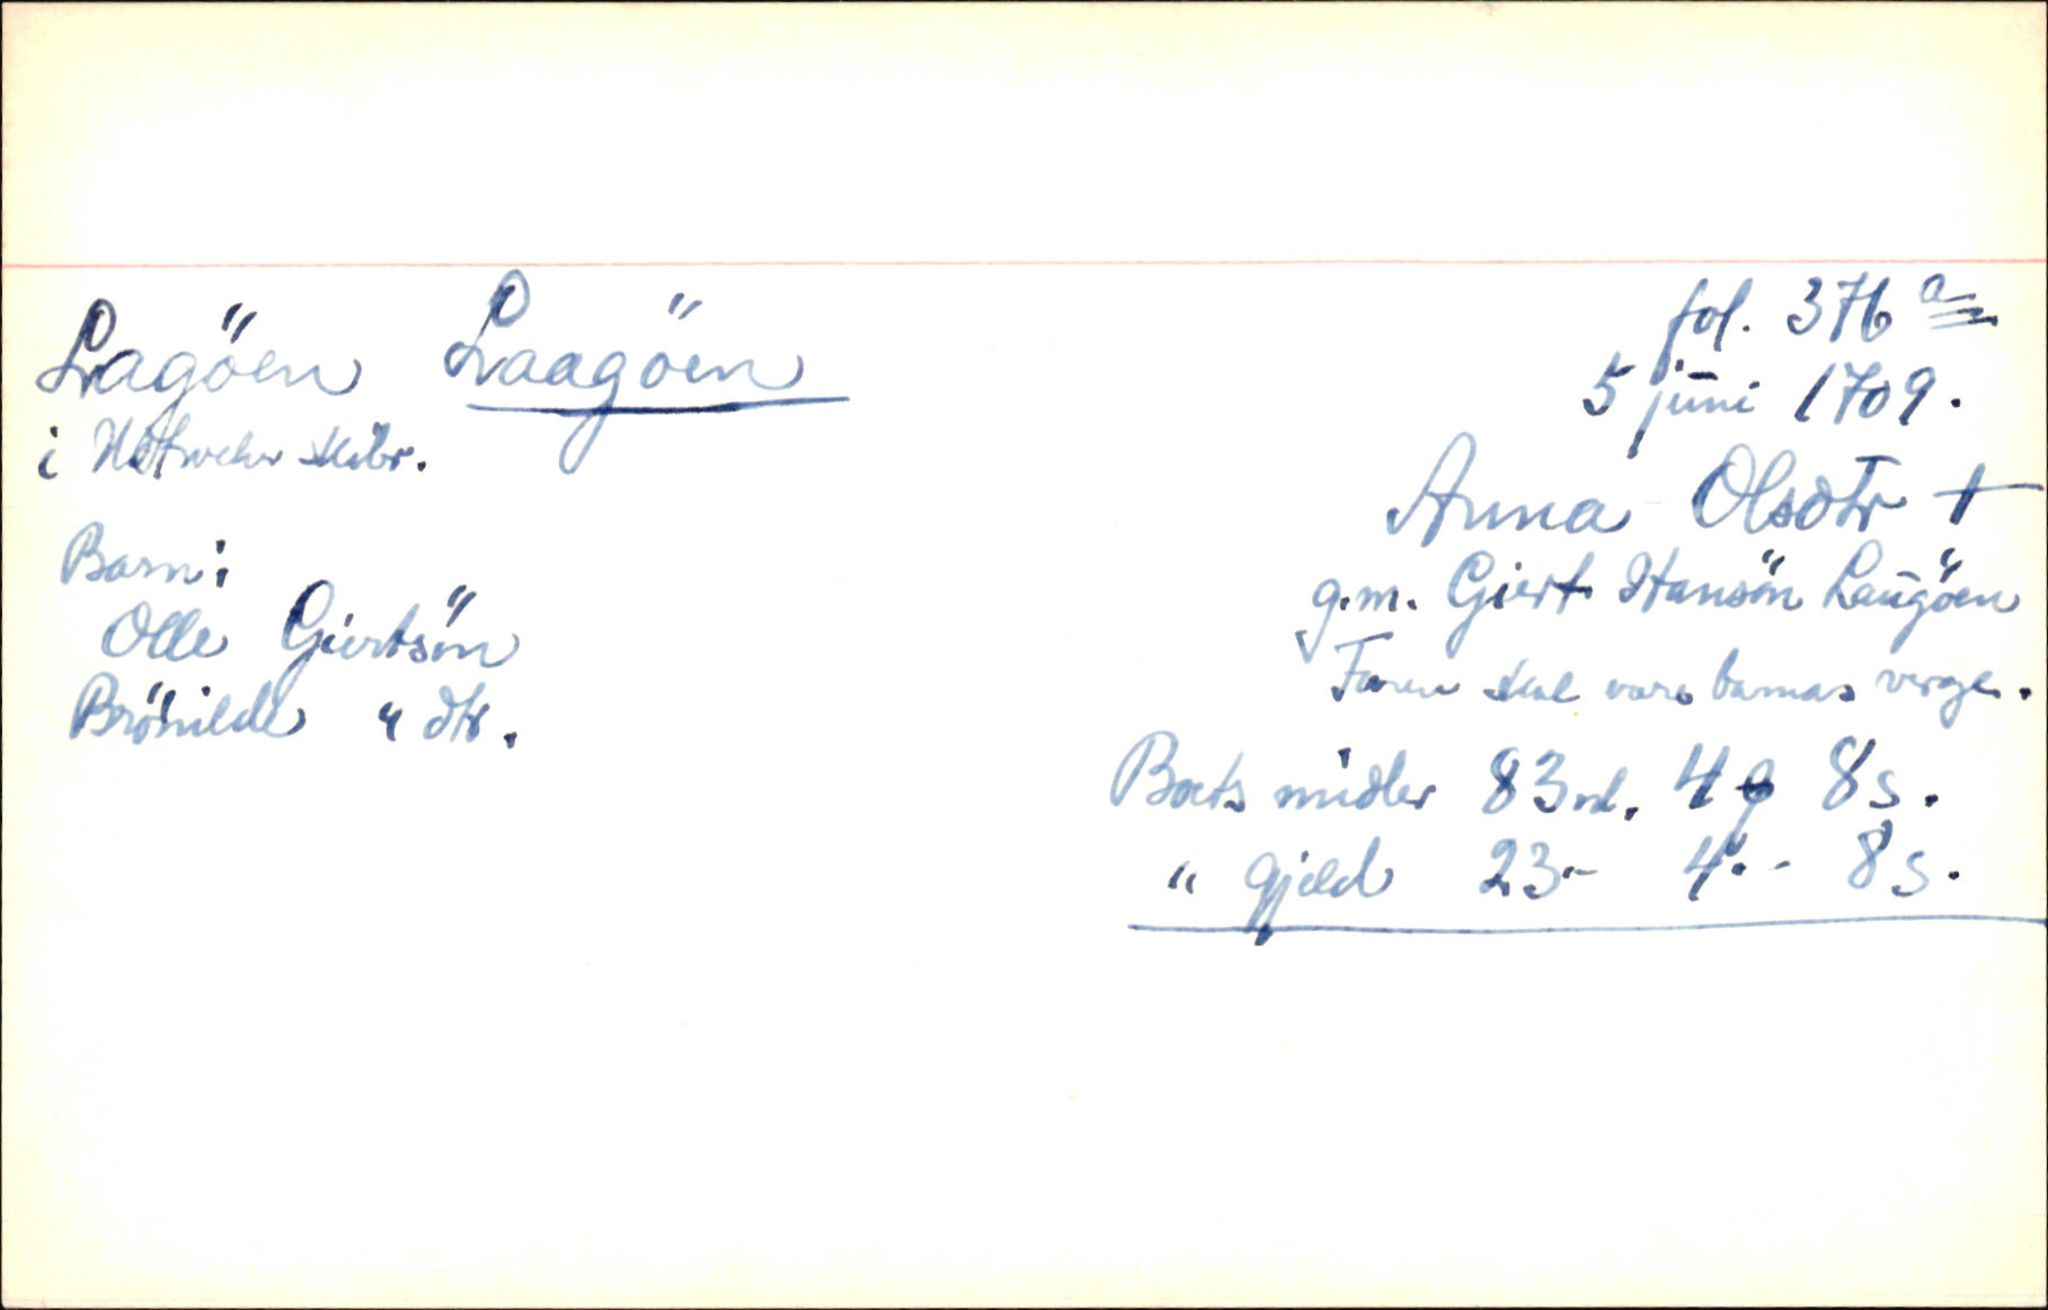 Lagöen Laagöen
i Utwehr skibr.
Barn:
Olle Giertsön
Brönilde " dtr.
fol. 376 a
5 juni 1709.
Anna Olsdtr +
g.m. Giert Hansön Laugöen
Faren skal være barnas verge.
Boets midler 83 rd. 4 8 s.
" gjeld 23 - 4 - 8 s.